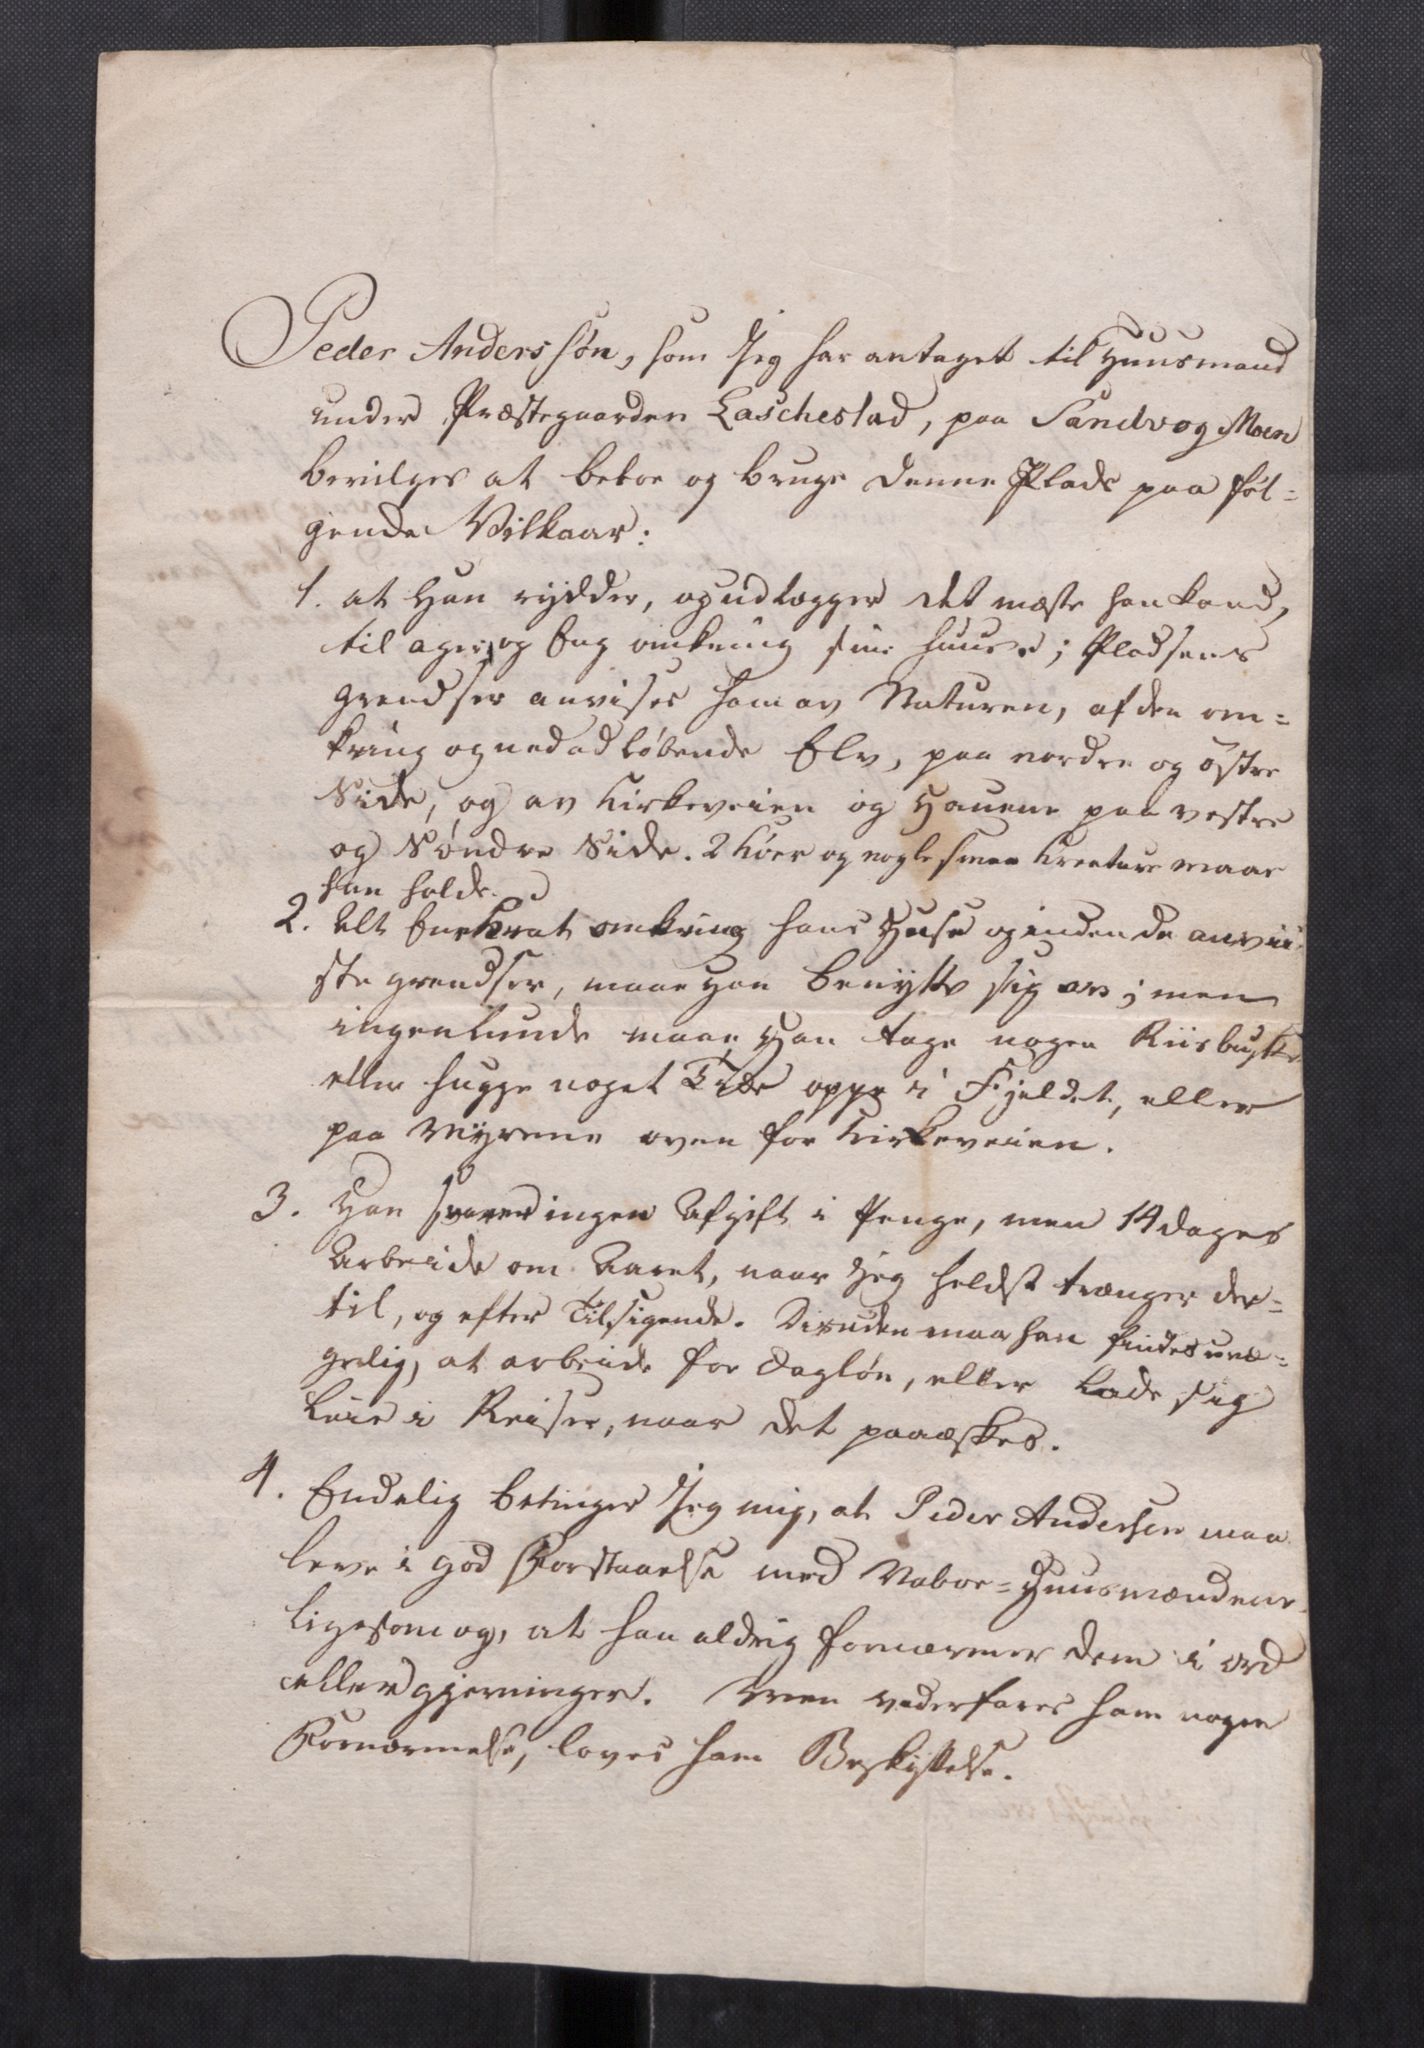 Peder Anderssøn, som Jeg har antaget til Huusmand
under Præstegaarden Laschestad, paa Sandvog Moen
bevilges at beboe og bruge denne Plads paa føl=
gende Vilkaar:
1. at Han rydder, og udlægger det mæste han kand,
til ager og Eng omkring sine Huuse; Pladsens
grendser anvises ham av Naturen, af den om=
kring og nedad løbende Elv, paa nordre og østre
Side, og av Kirkeveien og Hauene paa vestre
og Søndre Side. 2 Köer og nogle smaa Kreature maae
han holde.
2. Alt Enekrat omkring hans Huse og inden de anvii
ste grendser, maae Han benytte sig av; men
ingenlunde maae Han tage nogen Riisbuske
eller hugge noget Træe oppe i Fjeldet, eller
paa Myrene oven for Kirkeveien.
3. Han svarer ingen Afgift i Penge, men 14 dages
Arbeide om Aaret, naar Jeg heldst trænger der=
til, og efter Tilsigende. Desuden maa han findes uvæ=
gerlig, at arbeide for dagløn, eller lade sig
leie i Reiser, naar det paaæskes.
4. Endelig betinger Jeg mig, at Peder Andersen maa
leve i god Forstaaelse med Naboe=Huusmændene,
ligesom og, at han aldrig fornærmer dem i ord
eller gjerninger. Men vederfares ham nogen
Fornærmelse, loves ham Beskyttelse.